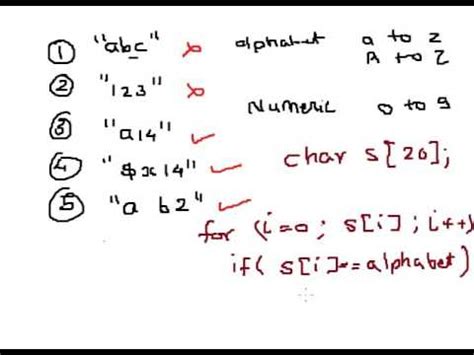 ① "abc" × alphabet a to z
A to Z
② "123" ×
Numeric 0 to 9
③ "a14" ✓
④ "$x14" ✓ char s[20];
⑤ "a b2" ✓
for (i=0 ; s[i] ; i++)
if( s[i]==alphabet)